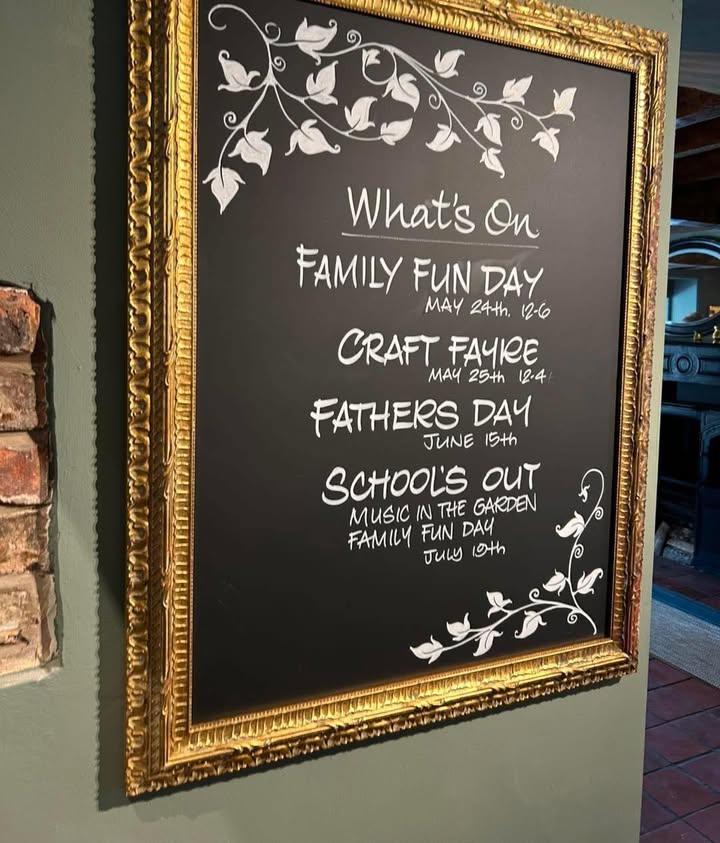 What's On
FAMILY FUN DAY
MAY 24th. 12-6
CRAFT FAYRE
MAY 25th 12-4
FATHERS DAY
JUNE 15th
SCHOOL'S OUT
MUSIC IN THE GARDEN
FAMILY FUN DAY
JULY 19th